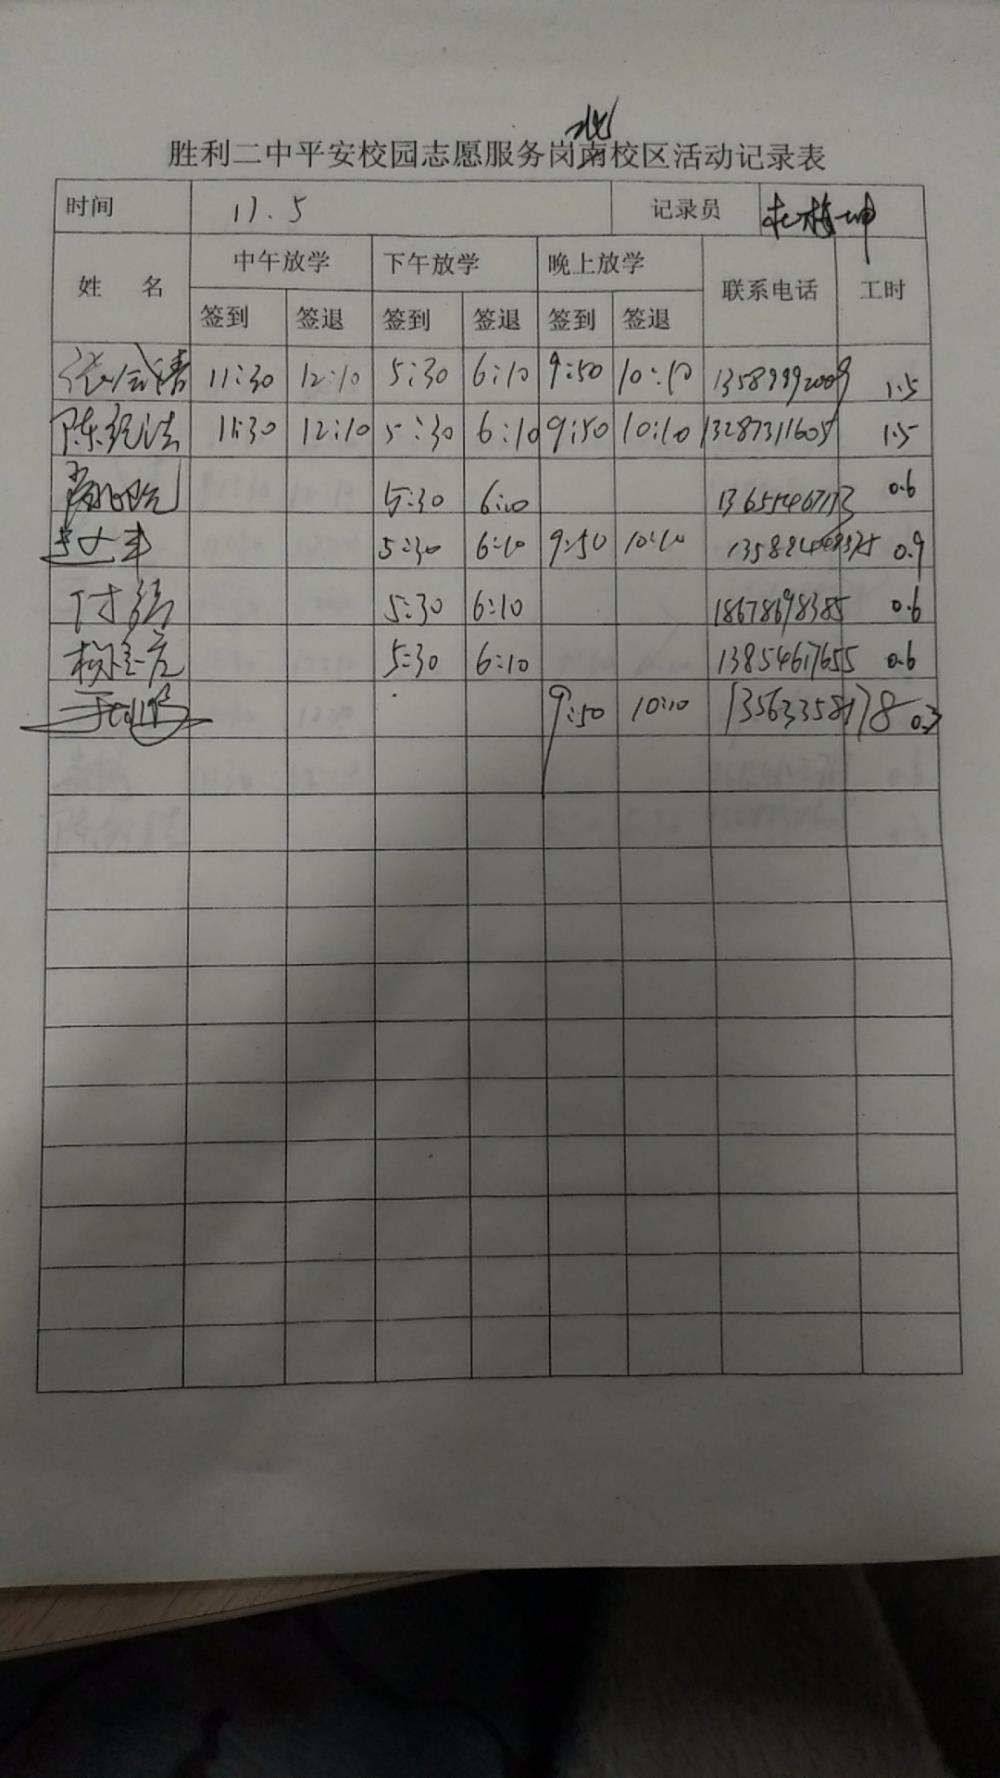 北
胜利二中平安校园志愿服务岗南校区活动记录表
时间 11.5 记录员 杜梅坤
姓 名 中午放学 下午放学 晚上放学 联系电话 工时
签到 签退 签到 签退 签到 签退
11:30 12:10 5:30 6:10 9:50 10:10 1.5
陈 11:30 12:10 5:30 6:10 9:50 10:10 13287311605 1.5
5:30 6:10 0.6
5:30 6:10 9:50 10:10 0.9
付 5:30 6:10 18678698385 0.6
5:30 6:10 13854617655 0.6
9:50 10:10 13563358178 0.3